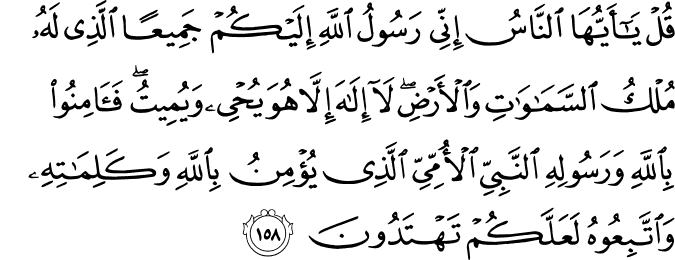 قُلْ يَـٰٓأَيُّهَا ٱلنَّاسُ إِنِّى رَسُولُ ٱللَّهِ إِلَيْكُمْ جَمِيعًا ٱلَّذِى لَهُۥ
مُلْكُ ٱلسَّمَـٰوَٰتِ وَٱلْأَرْضِ ۖ لَآ إِلَـٰهَ إِلَّا هُوَ يُحْىِۦ وَيُمِيتُ ۖ فَـَٔامِنُوا۟
بِٱللَّهِ وَرَسُولِهِ ٱلنَّبِىِّ ٱلْأُمِّىِّ ٱلَّذِى يُؤْمِنُ بِٱللَّهِ وَكَلِمَـٰتِهِۦ
وَٱتَّبِعُوهُ لَعَلَّكُمْ تَهْتَدُونَ ١٥٨